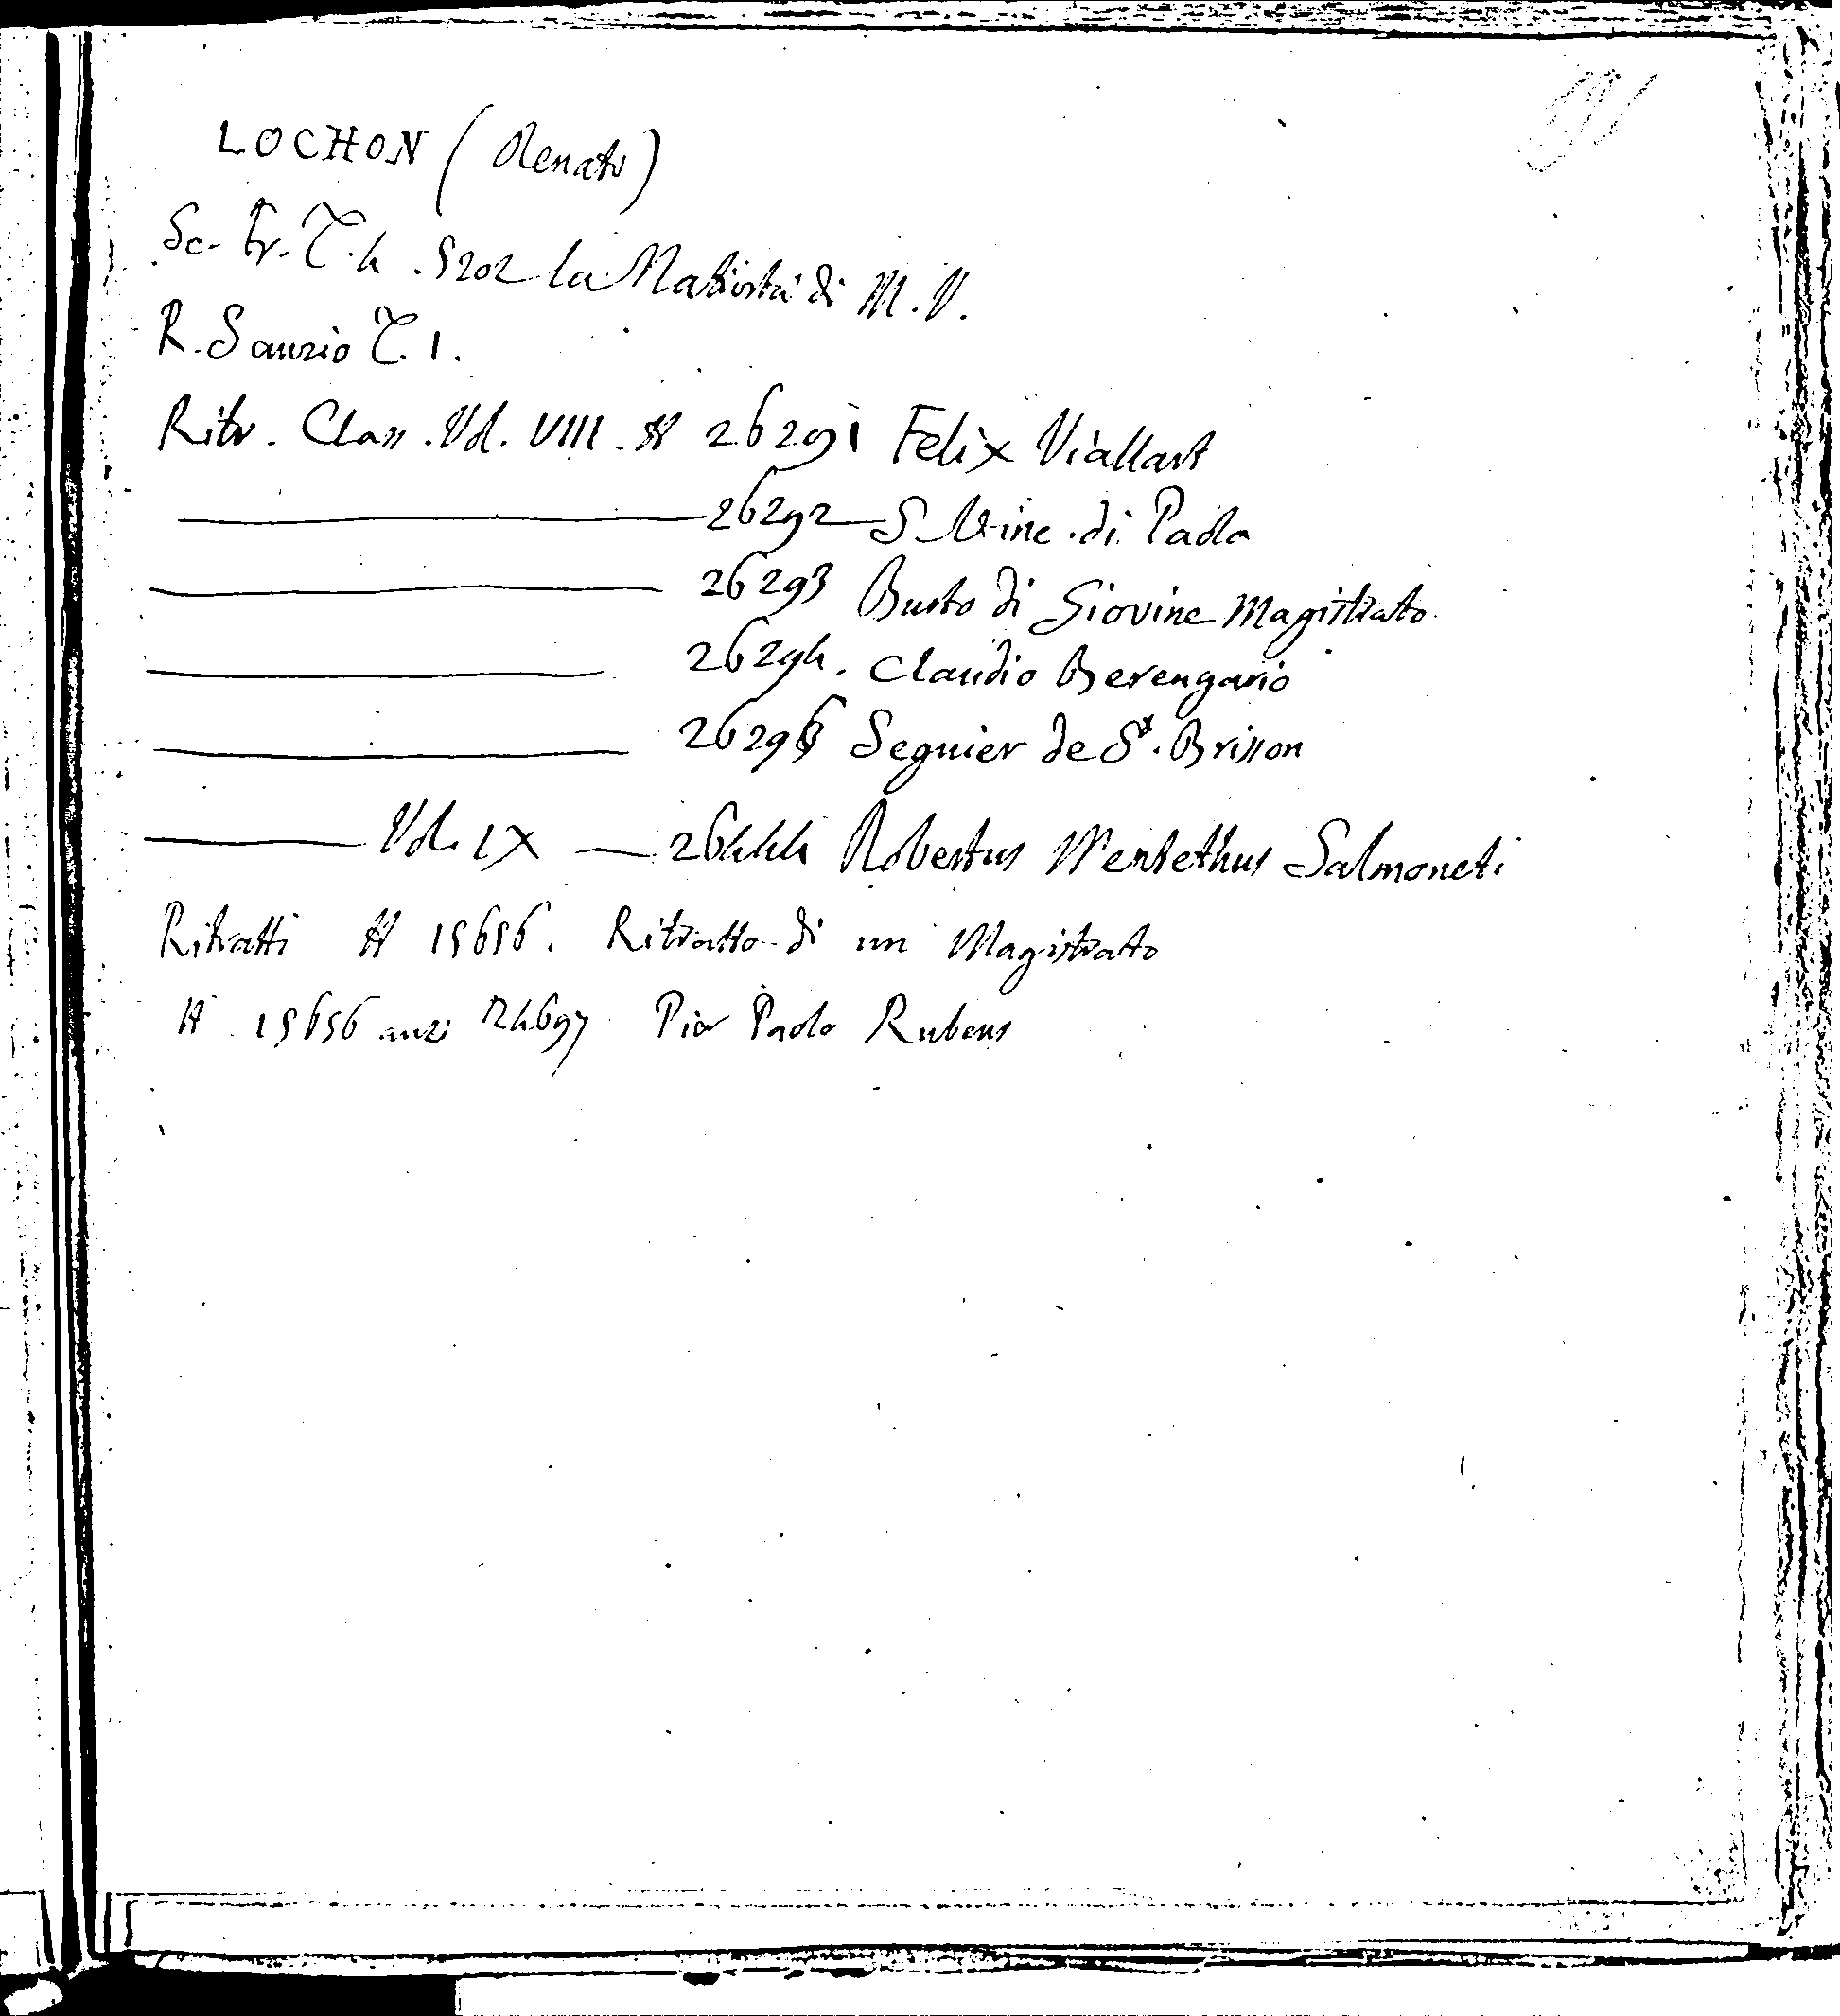 LOCHON (Renato)
Sc. Fr. T. 4. 5202 la Natività di M. V.
R. Sanzio T. 1.
Ritr. Class. Vol. VIII. N 26291 Felix Viallart
26292 S. Vinc. di Paola
26293 Busto di Giovine Magistrato
26294. Claudio Berengario
26296 Seguier de St. Brisson
Vol. IX 26444 Robertus Mentethus Salmoneti
Ritratti N 15656. Ritratto di un Magistrato
N 15656 anzi 24697 Pier Paolo Rubens